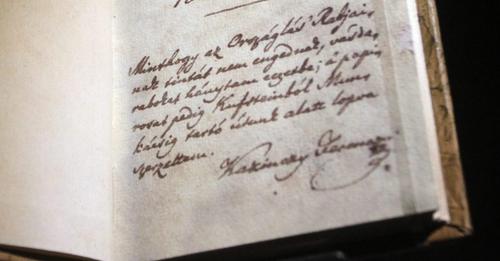 Minthogy az Országlás Rabjai,
nak tintát nem engednek, vasda,
rabokat hánytam eczetbe; a' papi,
rosat pedig Kufsteinból Mun,
kácsig tartó útunk alatt lopva
szereztem.
Kazinczy Ferencz